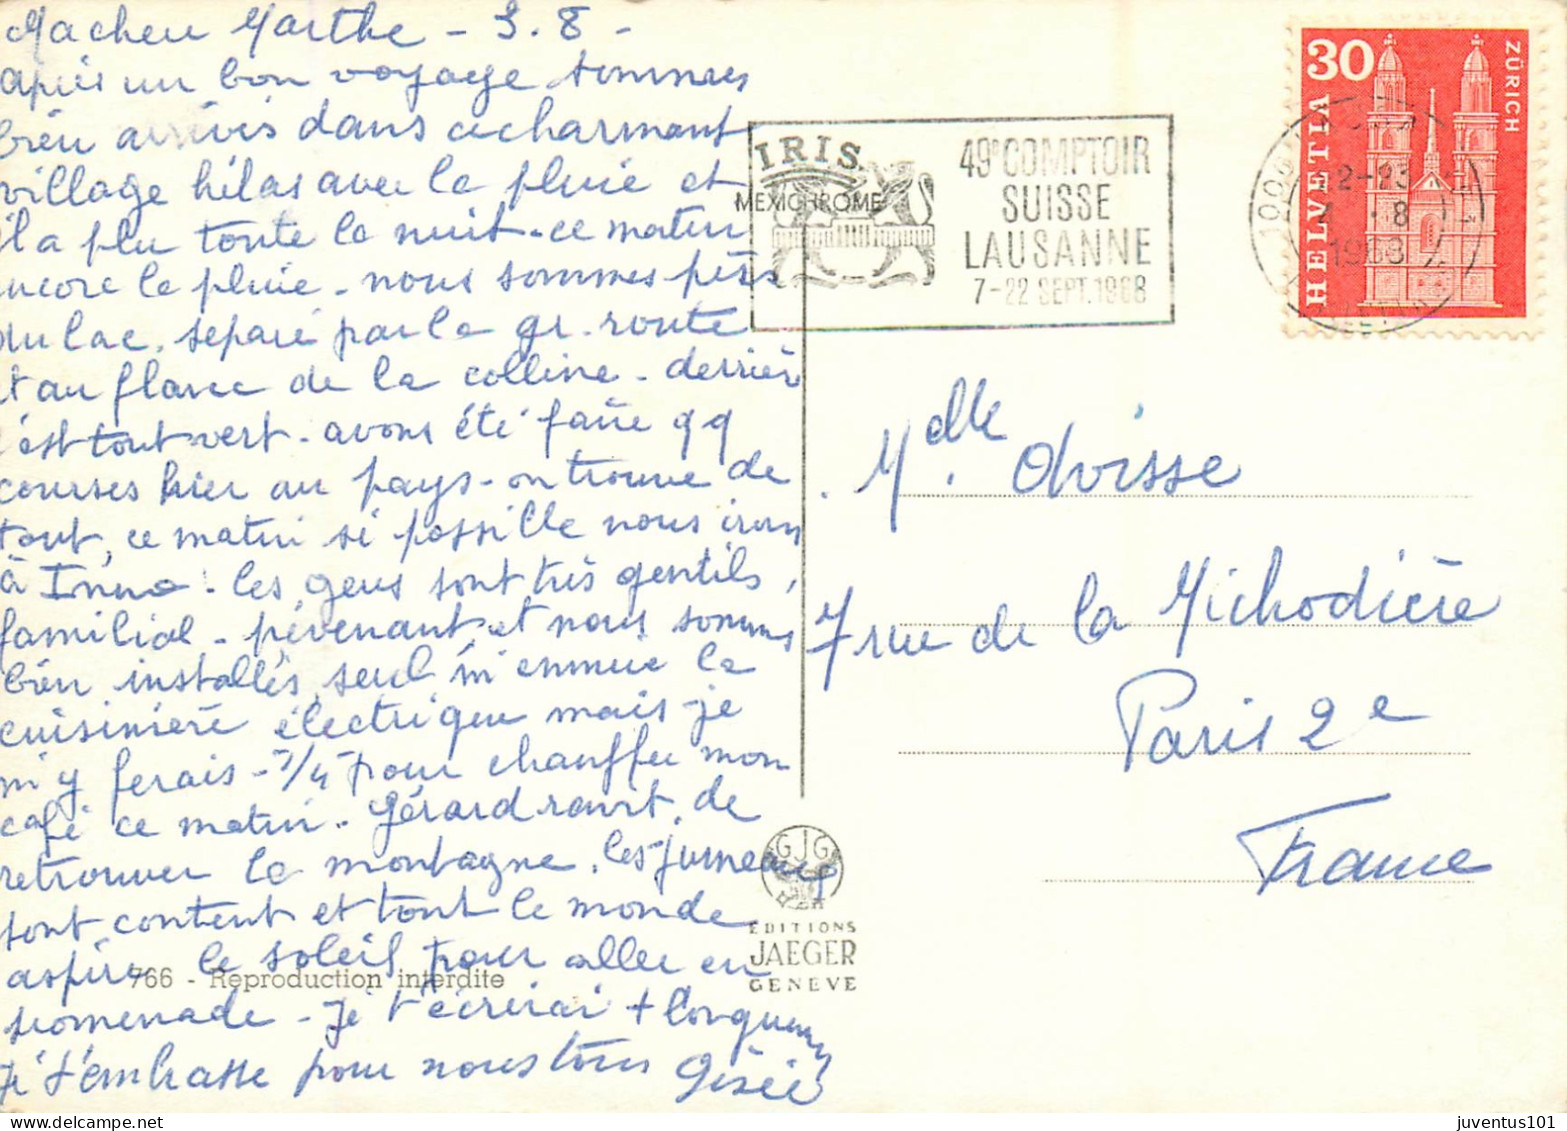 Ma chere Marthe - 3.8 -
après un bon voyage sommes
bien arrivés dans ce charmant
village hélas avec la pluie et
il a plu toute la nuit - ce matin
encore la pluie - nous sommes près
du lac, separé par la gr. route
et au flanc de la colline - derrière
c'est tout vert - avons été faire qq
courses hier au pays - on trouve de
tout, ce matin si possible nous irons
à Inno - les gens sont très gentils,
familial - prévenant, et nous sommes
bien installés, seul m'ennuie la
cuisinière électrique mais je
m'y ferais - 3/4 pour chauffer mon
café ce matin - Gérard ravit de
retrouver la montagne, les jumeaux
sont content et tout le monde
aspire le soleil pour aller en
promenade - Je t'écrirai + longuement
Je t'embrasse pour nous tous Gisèle
766 - Reproduction interdite
IRIS
MEXICHROME
49e COMPTOIR
SUISSE
LAUSANNE
7-22 SEPT. 1968
30
ZÜRICH
HELVETIA
1000
22-23
4.8
1968
Melle Avisse
7 rue de la Michodière
Paris 2e
France
GJG
EDITIONS
JAEGER
GENEVE
juventus101